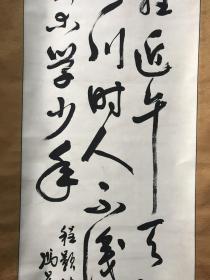 轻近午天
川时人不识
闲学少年
程颢